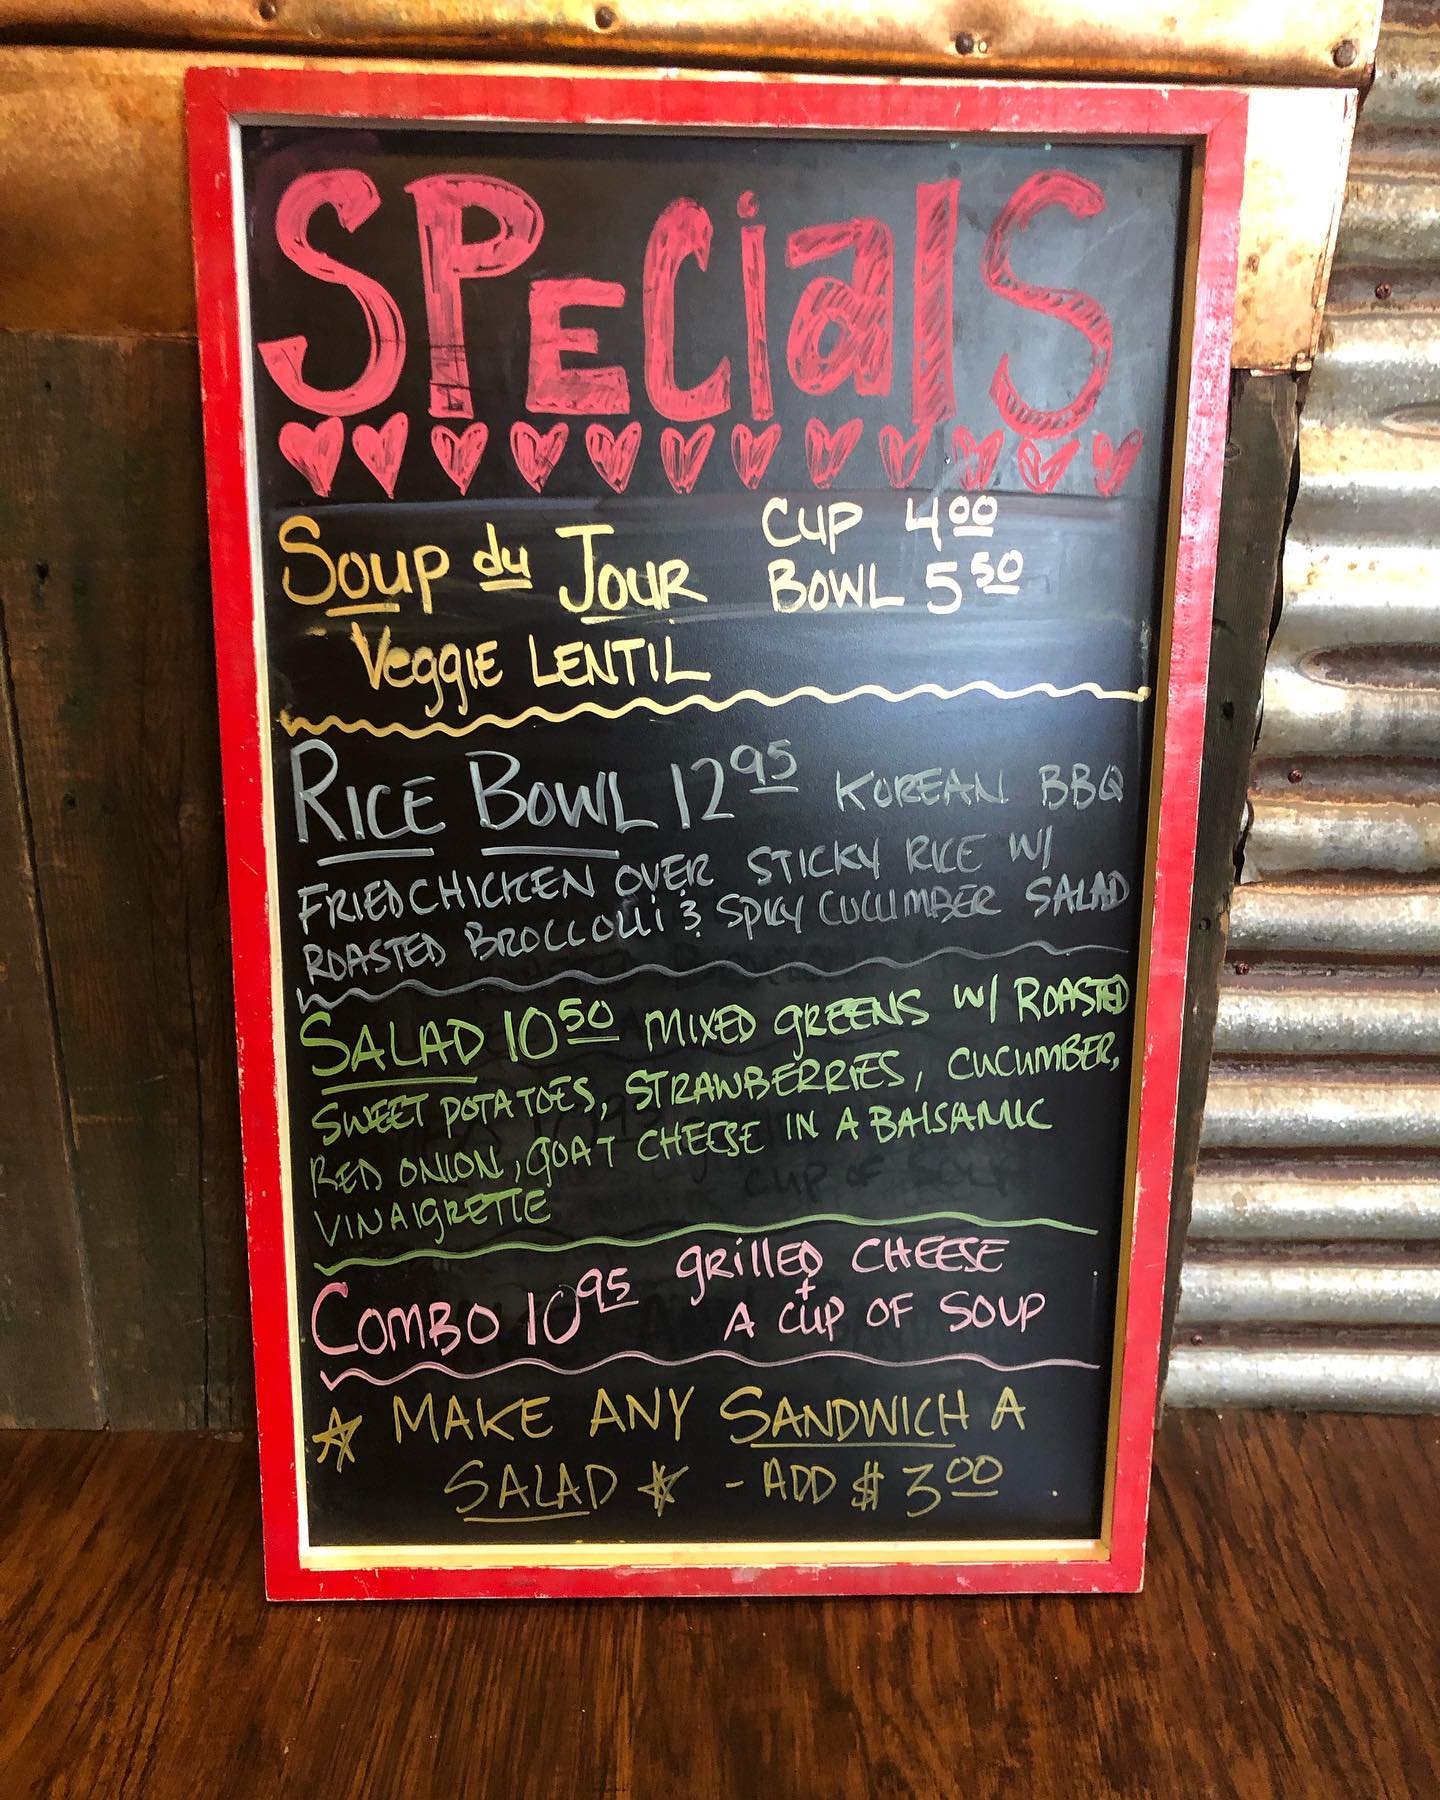 SPECialS
Soup du Jour Cup 4.00
Bowl 5.50
Veggie Lentil
RICE BOWL 12.95 KOREAN BBQ
FRIED CHICKEN OVER STICKY RICE W/
ROASTED BROCCOLLi & SPICY CUCUMBER SALAD
SALAD 10.50 MIXED GREENS W/ ROASTED
SWEET POTATOES, STRAWBERRIES, CUCUMBER,
RED ONION, GOAT CHEESE IN A BALSAMIC
VINAIGRETTE
COMBO 10.95 GRillED CHEESE
+
A CUP OF SOUP
MAKE ANY SANDWICH A
SALAD - ADD $3.00